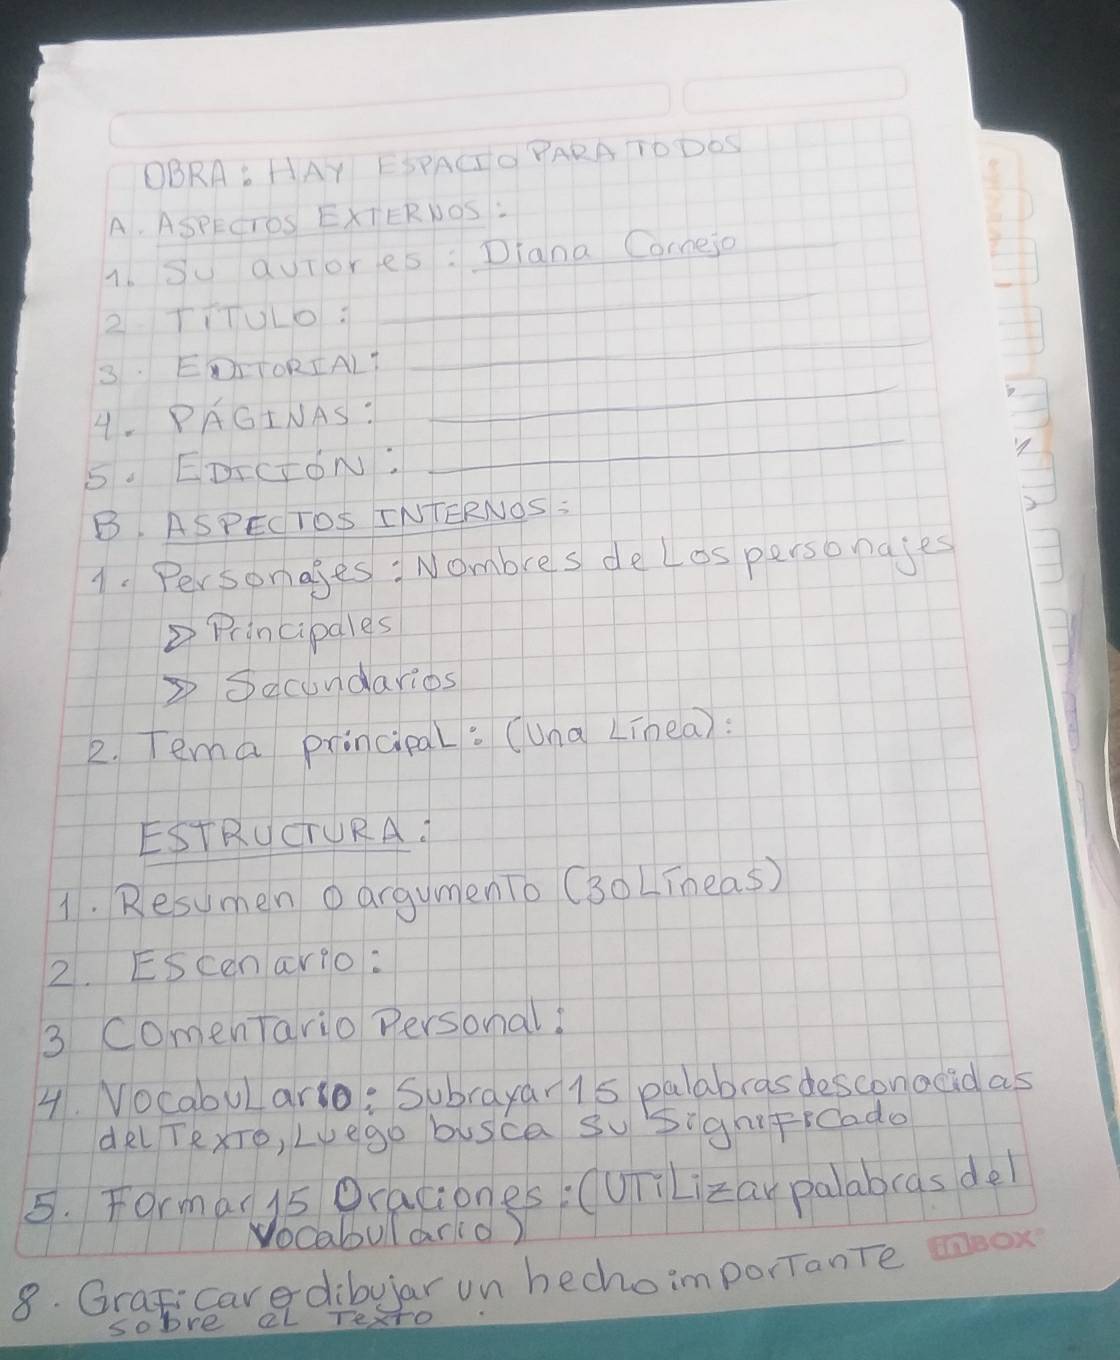 OBRA: HAY ESPACIO PARA TODOS
A. ASPECTOS EXTERNOS:
1. Su autores: Diana Cornejo
2. TÍTULO:
3. EDITORIAL:
4. PÁGINAS:
5. EDICIÓN:
B. ASPECTOS INTERNOS:
1. Personajes: Nombres de Los personajes
Principales
Secundarios
2. Tema principal: (Una Línea):
ESTRUCTURA:
1. Resumen o argumento (30 Líneas)
2. Escenario:
3 Comentario Personal:
4. Vocabulario: Subrayar 15 palabras desconocidas
del Texto, Luego busca su significado
5. Formar 15 Oraciones: (Utilizar palabras del
Vocabulario)
inBOX
8. Graficar o dibujar un hecho importante
sobre el Texto.